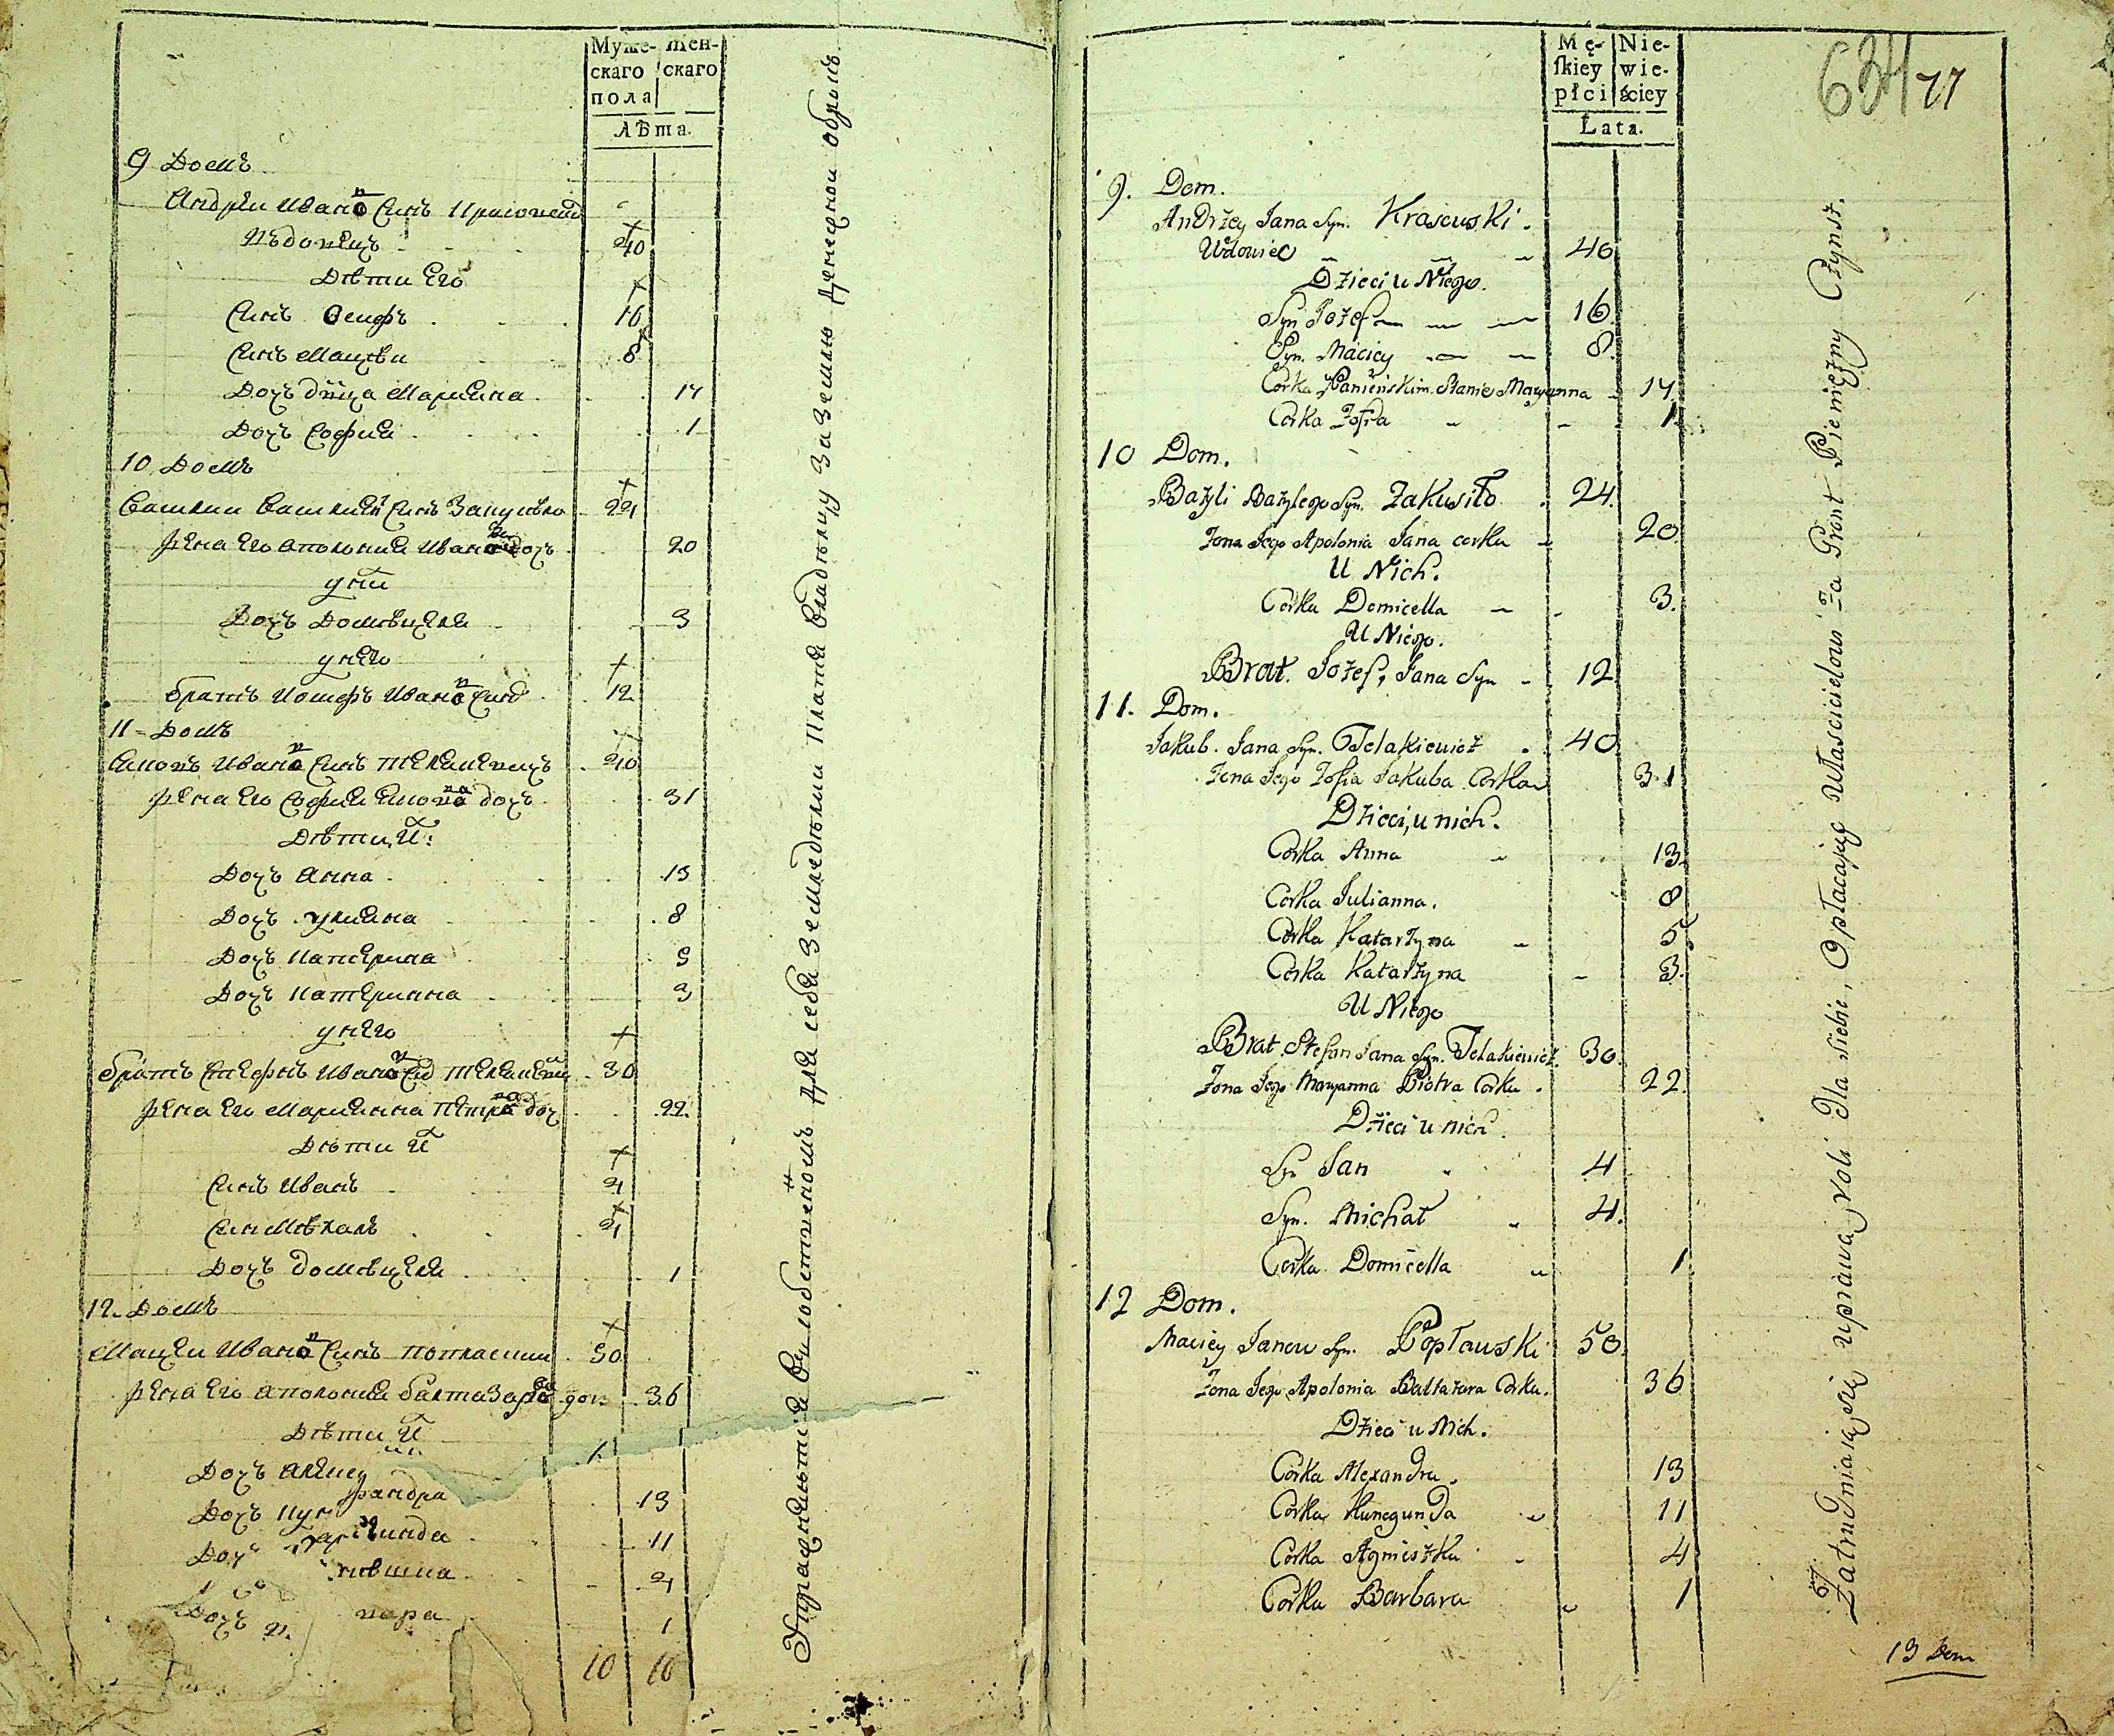 Муже-
скаго
пола
жен-
скаго
лѣта.
9 Домъ
Андрѣи Ивана Синъ
Вдовецъ 40
Дѣти Его
Синъ Осифъ 16
Синъ Мацѣи 8
Дочъ дѣвица Марцина 14
Дочъ София 1
10 Домъ
Василии Василия Синъ Закусило 24
Жена Его Аполония Ивана дочъ 20
у них
Дочъ Домбицеля 3
у него
братъ Иошефъ Ивана Синъ 12
11 Домъ
Ивана Синъ 40
Жена Его София дочъ 31
Дѣти их:
Дочъ Анна 13
Дочъ Улияна 8
Дочъ Катерина 5
Дочъ Катерина 3
у него
братъ Стефанъ Ивана 30
Жена Его Марианна Петра доч 22
Дѣти их
Синъ Иванъ 4
Синъ Михалъ 4
Дочъ домбицеля 1
12 Домъ
Мацѣи Ивана Синъ 50
Жена Его Аполония Балтазара доч 36
Дѣти их
Дочъ 13
Дочъ 11
Дочъ 4
Дочъ 1
10 16
для себя земледѣлии платя владѣльцу за землю денежнои оброкъ.
Mę-
ſkiey
płci
Nie-
wie-
ściey
Lata.
77
9. Dom.
Andrzey Jana Syn. Krascuski.
Wdowiec 40
Dzieci u Niego.
Syn Jozef 16
Syn. Maciey 8.
Corka Panieńskim Stanie Maryanna 14
Corka Zofia 1.
10 Dom.
Bazyli Bazylego Syn. Zakusiło 24.
Zona Jego Apolonia Jana corka 20
U Nich.
Corka Domicella 3.
U Niego.
Brat. Jozef, Jana Syn 12
11. Dom.
Jakub. Jana Syn. Telakiewicz 40
Zona Jego Zofia Jakuba Corka 31
Dzieci, u nich.
Corka Anna 13.
Corka Julianna. 8
Corka Katarzyna 5.
Corka Katarzyna 3.
U Niego
Brat. Stefan Jana Syn. Telakiewicz. 30.
Zona Jego Maryanna Piotra Corka. 22.
Dzieci u nich.
Syn Jan 4
Syn. Michał 4.
Corka Domicella 1
12 Dom.
Maciey Janow Syn. Popławski 50.
Zona Jego Apolonia Baltazara Corka. 36
Dzieci u Nich.
Corka Alexandra. 13
Corka Kunegunda 11
Corka Agnieszka 4
Corka Barbara 1
Zatrudniaią się uprawą roli dla siebie, Opłacaiąc Właścicielowi za Grunt Pieniężny Czynsz.
13 Dom